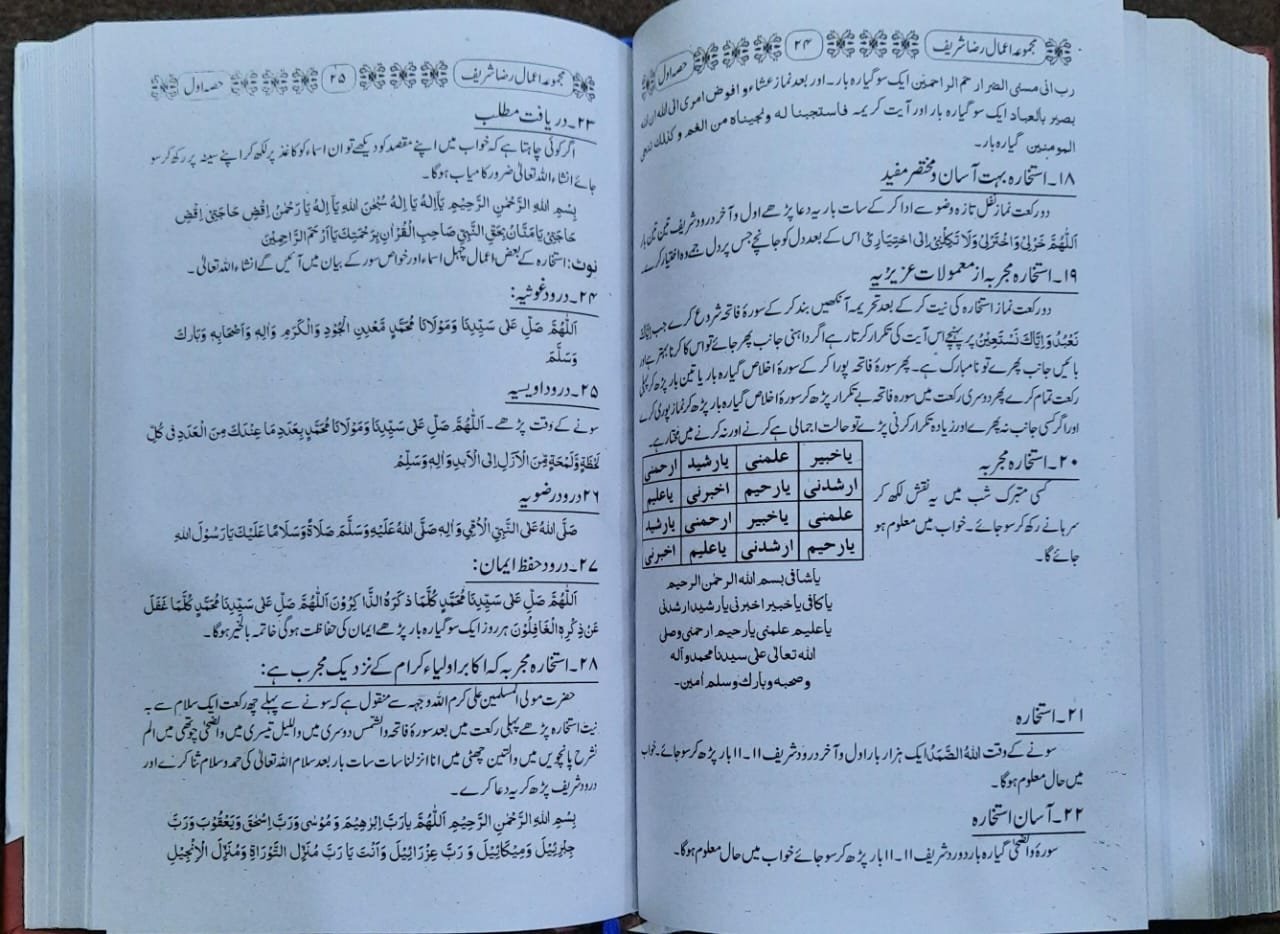 مجموعہ اعمال رضا شریف ۲۴ حصہ اول
رب انی مسنی الضر ارحم الراحمین ایک سو گیارہ بار۔ اور بعد نماز عشاء و افوض امری الی الله ان الله
بصیر بالعباد ایک سو گیارہ بار اور آیت کریمہ فاستجبنا له ونجیناه من الغم وكذلك ننجی
المومنین گیارہ بار۔
۱۸۔ استخارہ بہت آسان و مختصر مفید
دو رکعت نماز نفل تازہ وضو سے ادا کر کے سات بار یہ دعا پڑھے اول و آخر درود شریف تین تین بار
اَللّٰهُمَّ خَرْلِیْ وَاخْتَرْلِیْ وَلَا تَكِلْنِیْ اِلٰی اخْتِیَارِیْ اس کے بعد دل کو جانچے جس پر دل جمے وہ اختیار کرے۔
۱۹۔ استخارہ مجربہ از معمولات عزیزیہ
دو رکعت نماز استخارہ کی نیت کر کے بعد تحریمہ آنکھیں بند کر کے سورۂ فاتحہ شروع کرے جب اِیَّاكَ
نَعْبُدُ وَاِیَّاكَ نَسْتَعِیْنُ پر پہنچے اس آیت کی تکرار کرتا رہے اگر داہنی جانب پھر جائے تو اس کا کرنا بہتر ہے اور
بائیں جانب پھرے تو نامبارک ہے۔ پھر سورۂ فاتحہ پورا کر کے سورۂ اخلاص گیارہ بار یا تین بار پڑھ کر پہلی
رکعت تمام کرے پھر دوسری رکعت میں سورہ فاتحہ بے تکرار پڑھ کر سورۂ اخلاص گیارہ بار پڑھ کر نماز پوری کرے
اور اگر کسی جانب نہ پھرے اور زیادہ تکرار کرنی پڑے تو حالت اجمالی ہے کرنے اور نہ کرنے میں مختار ہے۔
۲۰۔ استخارہ مجربہ
کسی متبرک شب میں یہ نقش لکھ کر
سرہانے رکھ کر سو جائے۔ خواب میں معلوم ہو
جائے گا۔
یاخبیر علمنی یارشید ارحمنی
ارشدنی یارحیم اخبرنی یاعلیم
علمنی یاخبیر ارحمنی یارشید
یارحیم ارشدنی یاعلیم اخبرنی
یاشافی بسم الله الرحمٰن الرحیم
یاکافی یاخبیر اخبرنی یارشید ارشدنی
یاعلیم علمنی یارحیم ارحمنی وصلی
الله تعالی علی سیدنا محمد وآله
وصحبه وبارك وسلم آمین۔
۲۱۔ استخارہ
سونے کے وقت اَللهُ الصَّمَدُ ایک ہزار بار اول و آخر درود شریف ۱۱۔۱۱ بار پڑھ کر سو جائے۔ خواب
میں حال معلوم ہوگا۔
۲۲۔ آسان استخارہ
سورۂ والضحیٰ گیارہ بار درود شریف ۱۱۔۱۱ بار پڑھ کر سو جائے خواب میں حال معلوم ہوگا۔
مجموعہ اعمال رضا شریف ۲۵ حصہ اول
۲۳۔ دریافت مطلب
اگر کوئی چاہتا ہے کہ خواب میں اپنے مقصد کو دیکھے تو ان اسماء کو کاغذ پر لکھ کر اپنے سینہ پر رکھ کر سو
جائے انشاء اللہ تعالیٰ ضرور کامیاب ہوگا۔
بِسْمِ اللهِ الرَّحْمٰنِ الرَّحِیْمِ یَااِلٰهُ یَا اِلٰهُ سُبْحٰنَ اللهِ یَا اِلٰهُ یَا رَحْمٰنُ اِقْضِ حَاجَتِیْ اِقْضِ
حَاجَتِیْ یَا مَنَّانُ بِحَقِّ النَّبِیِّ صَاحِبِ الْقُرْاٰنِ بِرَحْمَتِكَ یَا اَرْحَمَ الرَّاحِمِیْنَ
نوٹ: استخارہ کے بعض اعمال چہل اسماء اور خواص سور کے بیان میں آئیں گے انشاء اللہ تعالیٰ۔
۲۴۔ درود غوثیہ:
اَللّٰهُمَّ صَلِّ عَلٰی سَیِّدِنَا وَمَوْلَانَا مُحَمَّدٍ مَّعْدِنِ الْجُوْدِ وَالْكَرَمِ وَاٰلِهٖ وَاَصْحَابِهٖ وَبَارِكْ
وَسَلَّمْ
۲۵۔ درود اویسیہ
سونے کے وقت پڑھے۔ اَللّٰهُمَّ صَلِّ عَلٰی سَیِّدِنَا وَمَوْلَانَا مُحَمَّدٍ بِعَدَدِ مَا عِنْدَكَ مِنَ الْعَدَدِ فِیْ كُلِّ
لَحْظَةٍ وَّلَمْحَةٍ مِّنَ الْاَزَلِ اِلَی الْاَبَدِ وَاٰلِهٖ وَسَلِّمْ
۲۶ درود رضویہ
صَلَّی اللهُ عَلَی النَّبِیِّ الْاُمِّیِّ وَاٰلِهٖ صَلَّی اللهُ عَلَیْهِ وَسَلَّمَ صَلَاةً وَّسَلَامًا عَلَیْكَ یَارَسُوْلَ اللهِ
۲۷۔ درود حفظ ایمان:
اَللّٰهُمَّ صَلِّ عَلٰی سَیِّدِنَا مُحَمَّدٍ كُلَّمَا ذَكَرَهُ الذَّاكِرُوْنَ اَللّٰهُمَّ صَلِّ عَلٰی سَیِّدِنَا مُحَمَّدٍ كُلَّمَا غَفَلَ
عَنْ ذِكْرِهِ الْغَافِلُوْنَ ہر روز ایک سو گیارہ بار پڑھے ایمان کی حفاظت ہوگی خاتمہ بالخیر ہوگا۔
۲۸۔ استخارہ مجربہ کہ اکابر اولیاء کرام کے نزدیک مجرب ہے:
حضرت مولی المسلمین علی کرم اللہ وجہہ سے منقول ہے کہ سونے سے پہلے چھ رکعت ایک سلام سے بہ
نیت استخارہ پڑھے پہلی رکعت میں بعد سورہ فاتحہ والشمس دوسری میں واللیل تیسری میں والضحیٰ چوتھی میں الم
نشرح پانچویں میں والتین چھٹی میں انا انزلنا سات سات بار بعد سلام اللہ تعالیٰ کی حمد و سلام ثنا کرے اور
درود شریف پڑھ کر یہ دعا کرے۔
بِسْمِ اللهِ الرَّحْمٰنِ الرَّحِیْمِ اَللّٰهُمَّ یَارَبَّ اِبْرٰهِیْمَ وَمُوْسٰی وَرَبَّ اِسْحٰقَ وَیَعْقُوْبَ وَرَبَّ
جِبْرِئِیْلَ وَمِیْكَائِیْلَ وَرَبَّ عِزْرَائِیْلَ وَاَنْتَ یَا رَبَّ مُنَزِّلَ التَّوْرَاةِ وَمُنَزِّلَ الْاِنْجِیْلِ